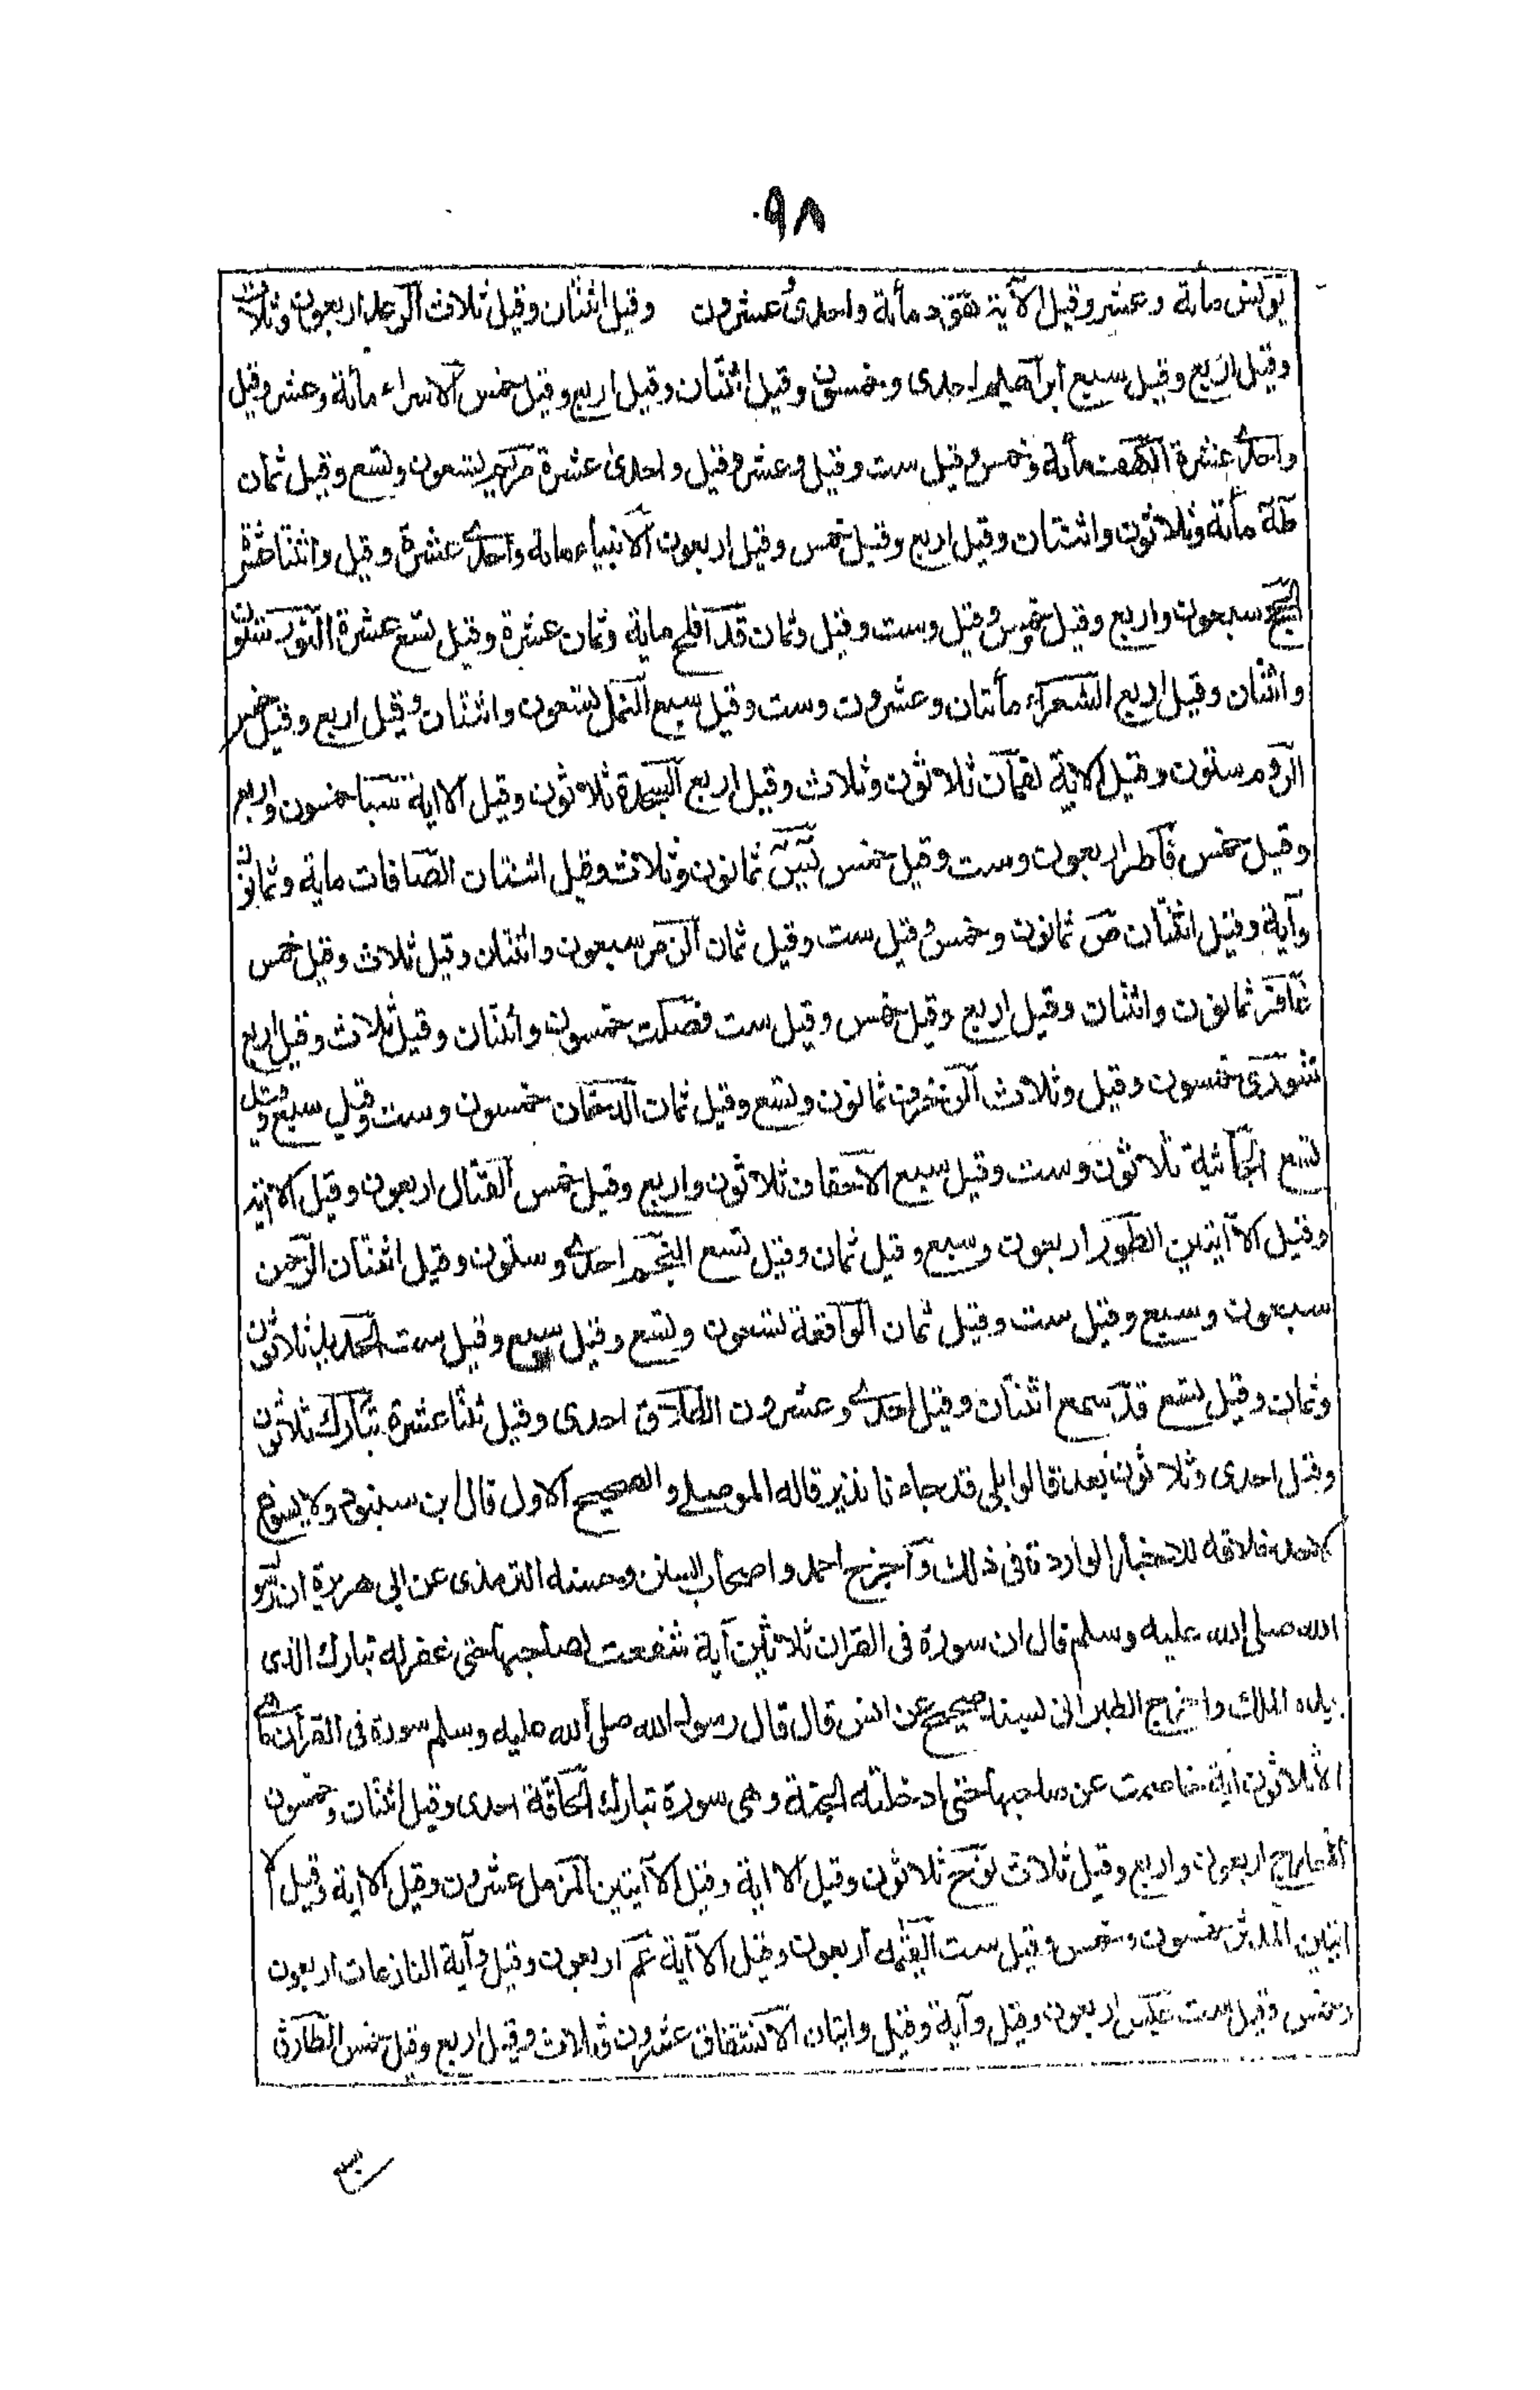 ٩٨
يونس ماية وعشر وقيل الآية هود مأية واحدى عشرون وقيل اثنتان وقيل ثلاث الرعد اربعون وثلاث
وقيل اربع وقيل سبع ابراهيم احدى وخمسون وقيل اثنتان وقيل اربع وقيل خمس الاسراء مأية وعشر وقيل
واحدى عشرة الكهف مأية وخمس وقيل ست وقيل وعشر وقيل واحدى عشرة مريم تسعون وتسع وقيل ثمان
طه مأية وثلاثون واثنتان وقيل اربع وقيل خمس وقيل اربعون الانبياء ماية واحدى عشرة وقيل واثنتا عشرة
الحج سبعون واربع وقيل خمس وقيل وست وقيل وثمان قد افلح ماية وثمان عشرة وقيل تسع عشرة النور ستون
واثنان وقيل اربع الشعراء مأتان وعشرون وست وقيل سبع النمل تسعون واثنتان وقيل اربع وقيل خمس
الروم ستون وقيل الاية لقمان ثلاثون وثلاث وقيل اربع السجدة ثلاثون وقيل الااية سبا خمسون واربع
وقيل خمس فاطر اربعون وست وقيل خمس يٰسٓ ثمانون وثلاث وقيل اثنتان الصافات ماية وثمانون
وآية وقيل اثنتان صٓ ثمانون وخمس وقيل ست وقيل ثمان الزمر سبعون واثنتان وقيل ثلاث وقيل خمس
غافر ثمانون واثنتان وقيل اربع وقيل خمس وقيل ست فصلت خمسون واثنتان وقيل ثلاث وقيل اربع
شورى خمسون وقيل وثلاث الزخرف ثمانون وتسع وقيل ثمان الدخان خمسون وست وقيل سبع وقيل
تسع الجاثية ثلاثون وست وقيل سبع الاحقاف ثلاثون واربع وقيل خمس القتال اربعون وقيل الا آية
وقيل الا آيتين الطور اربعون وسبع وقيل ثمان وقيل تسع النجم احدى وستون وقيل اثنتان الرحمن
سبعون وسبع وقيل ست وقيل ثمان الواقعة تسعون وتسع وقيل سبع وقيل ست الحديد ثلاثون
وثمان وقيل تسع قد سمع اثنتان وقيل احدى وعشرون الطلاق احدى وقيل ثنتا عشرة تبارك ثلاثون
وقيل احدى وثلاثون بعد قالوا بلى قد جاءنا نذير قاله الموصلي والصحيح الاول قال ابن سنبوذ ولا يسوغ
لاحد خلافه للاخبار الواردة في ذلك واخرج احمد واصحاب السنن وحسنه الترمذى عن ابي هريرة ان رسو
الله صلى الله عليه وسلم قال ان سورة فى القران ثلاثين آية شفعت لصاحبها حتى غفر له تبارك الذى
بيده الملك واخرج الطبرانى بسند صحيح عن انس قال قال رسول الله صلى الله عليه وسلم سورة فى القرآن ما هى
الا ثلاثون آية خاصمت عن صاحبها حتى ادخلته الجنة وهى سورة تبارك الحاقة احدى وقيل اثنتان وخمسون
المعارج اربعون واربع وقيل ثلاث نوح ثلاثون وقيل الا اية وقيل الا آيتين المزمل عشرون وقيل الا اية وقيل الا
ايتين المدثر خمسون وخمس وقيل ست القيٰمه اربعون وقيل الا آية عم اربعون وقيل وآية النازعات اربعون
وخمس وقيل ست عبس اربعون وقيل وآية وقيل وايتان الانشقاق عشرون وثلاث وقيل اربع وقيل خمس الطارق